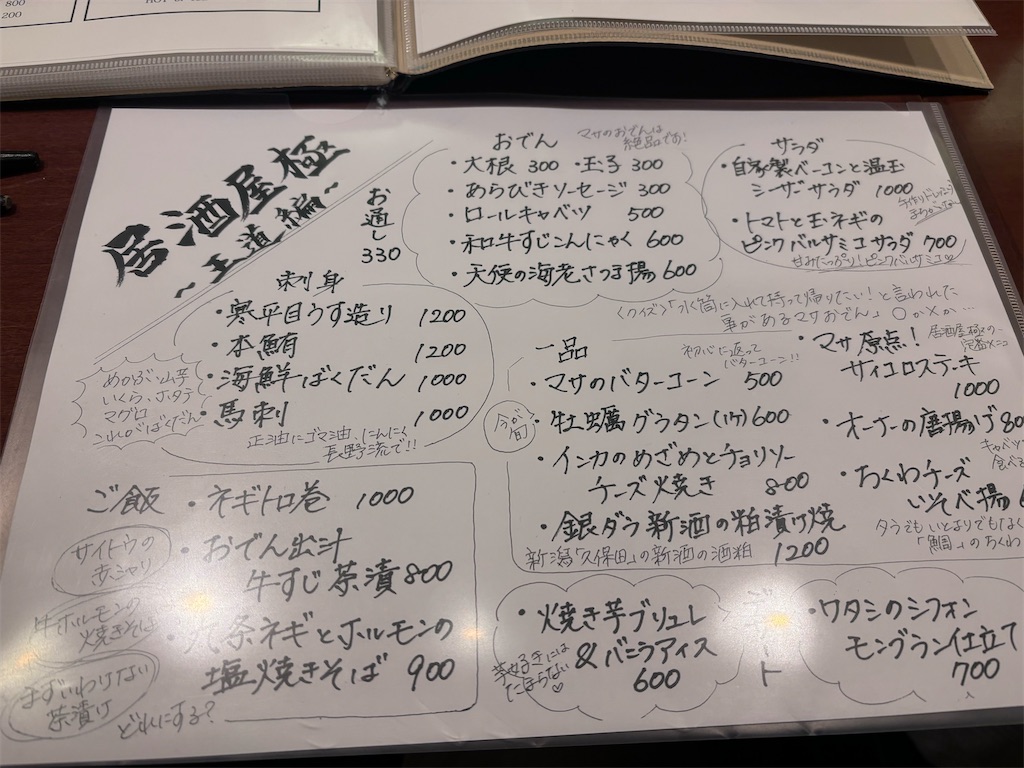 800
200
居酒屋極
~王道編~
お通し
330
おでん
マサのおでんは
絶品です!
・大根 300 ・玉子 300
・あらびきソーセージ 300
・ロールキャベツ 500
・和牛すじこんにゃく 600
・天使の海老さつま揚 600
サラダ
・自家製ベーコンと温玉
シーザーサラダ 1000
・トマトと玉ネギの
ピンクバルサミコサラダ 700
甘みたっぷり!ピンクバルサミコ♡
刺身
・寒平目うす造り 1200
・本鮪 1200
・海鮮ばくだん 1000
・馬刺 1000
めかぶ、山芋
いくら、ホタテ
マグロ
これがばくだん
正油にゴマ油、にんにく
長野流で!!
〈クイズ〉「水筒に入れて持って帰りたい!と言われた
事があるマサおでん」〇か×か…
一品
初心に返って
バターコーン!!
・マサのバターコーン 500
今が旬
・牡蠣グラタン(1ケ) 600
・インカのめざめとチョリソー
チーズ焼き 800
・銀ダラ新酒の粕漬け焼
新潟「久保田」の新酒の酒粕 1200
・マサ原点!
居酒屋極の
サイコロステーキ
1000
・オーナーの唐揚げ 80
キャベツ
食べ
・ちくわチーズ
いそべ揚
タラでもいとよりでもなく
「鯛」のちくわ
ご飯
・ネギトロ巻 1000
・おでん出汁
牛すじ茶漬 800
・九条ネギとホルモンの
塩焼きそば 900
サイトウの
赤シャリ
牛ホルモンの
焼きそば
まずいわけない
茶漬け
どれにする?
デザート
・焼き芋ブリュレ
&バニラアイス
600
芋好きには
たまらない
♡
・ワタシのシフォン
モンブラン仕立て
700